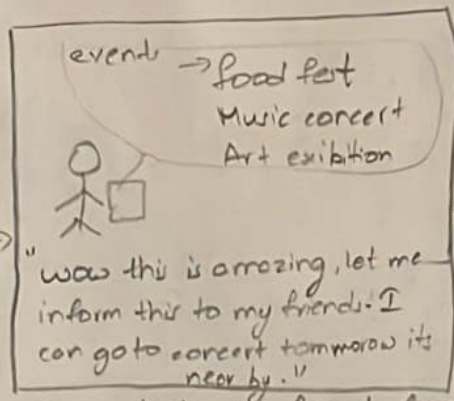 events → food fest
Music concert
Art exibition
"wow this is amazing, let me
inform this to my friends. I
can go to concert tommorow its
near by."